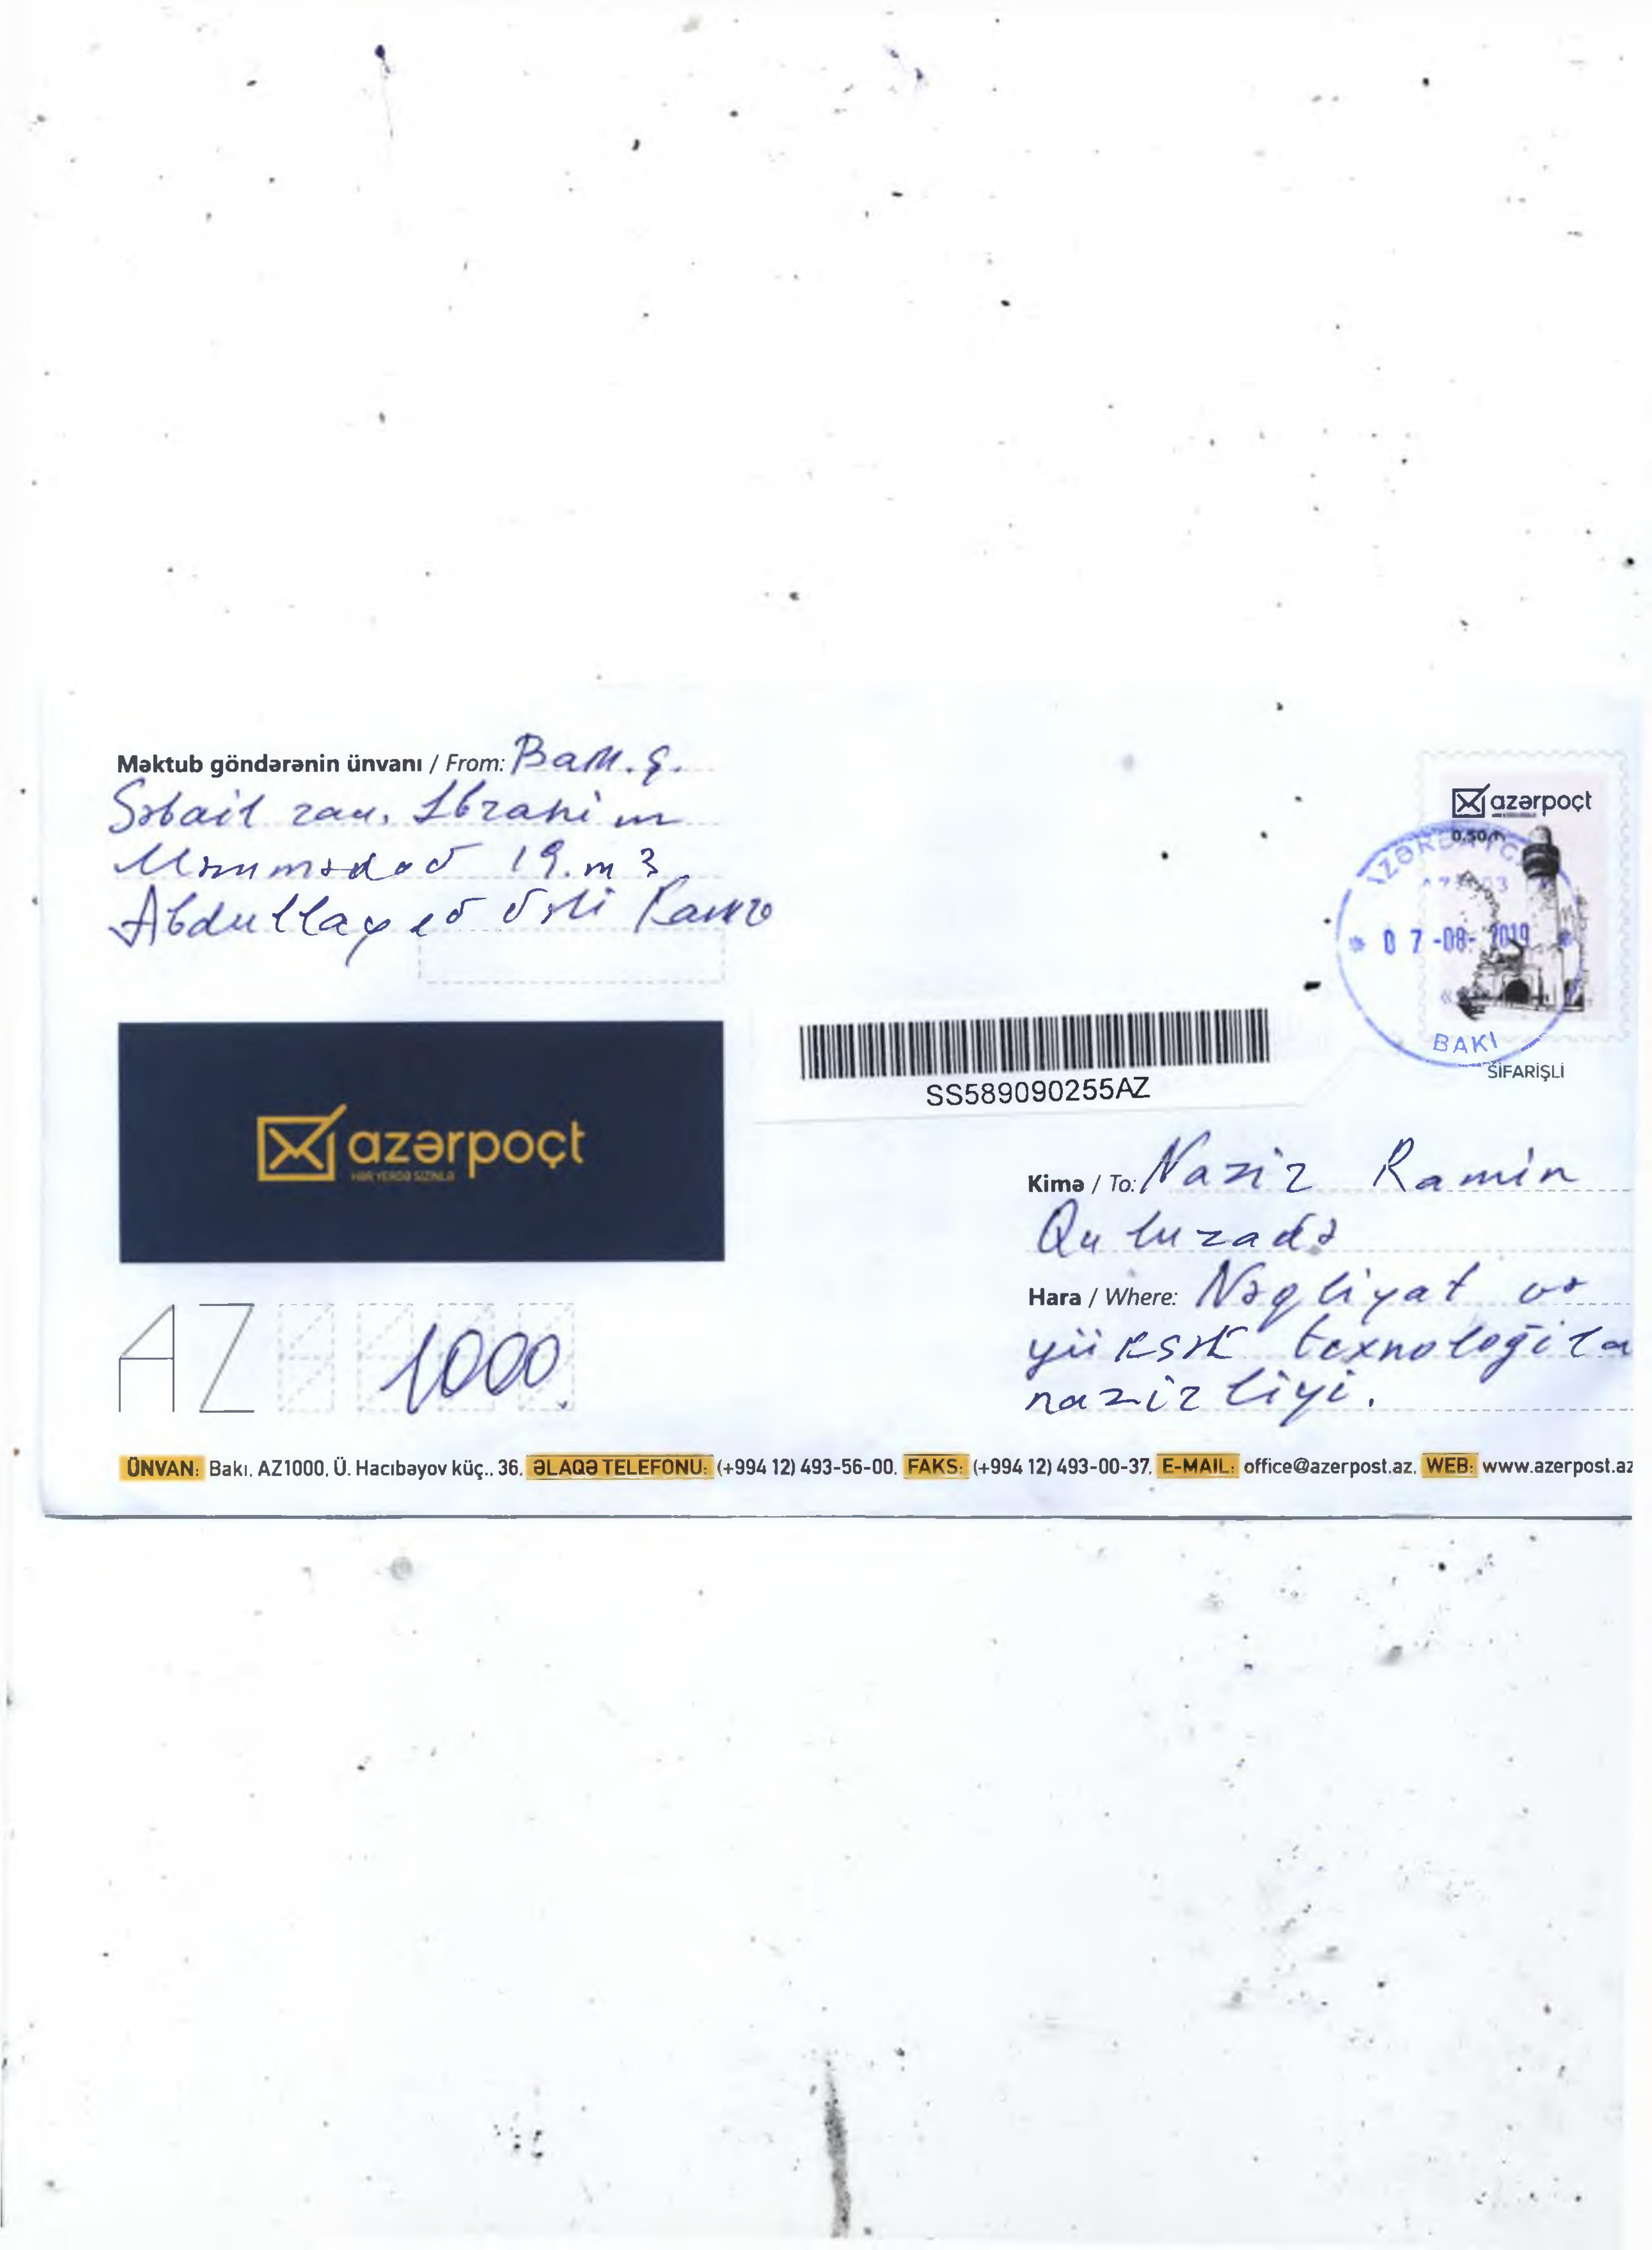 Məktub göndərənin ünvanı / From: Bakı. ş.
Səbail ray. Ibrahim
Məmmədov 19. m 3
Abdullayev Vəli
azərpoçt
0,50
07-08-2019
BAKI
SİFARİŞLİ
SS589090255AZ
azərpoçt
HƏR YERDƏ SİZİNLƏ
Kimə / To: Nazir Ramin
Quluzadə
Hara / Where: Nəqliyat və
yüksək texnologila
nazirliyi.
AZ 1000
ÜNVAN: Bakı, AZ1000, Ü. Hacıbəyov küç., 36, ƏLAQƏ TELEFONU: (+994 12) 493-56-00, FAKS: (+994 12) 493-00-37, E-MAIL: office@azerpost.az, WEB: www.azerpost.az